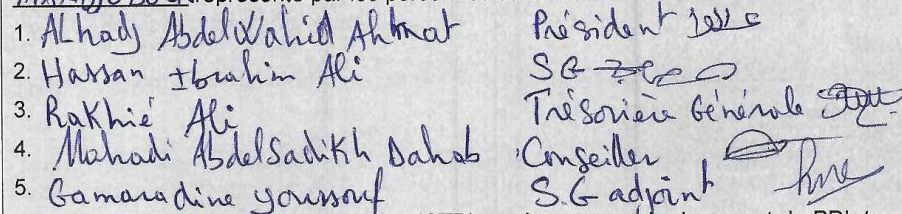 représenté par les
1. ALhadj AbdelWahid Ahmat Président
2. Hassan Ibrahim Ali SG
3. Rakhié Ali Trésorière Générale
4. Mahadi AbdelSadikh Dahab Conseiller
5. Gamaradine youssouf S.G adjoint